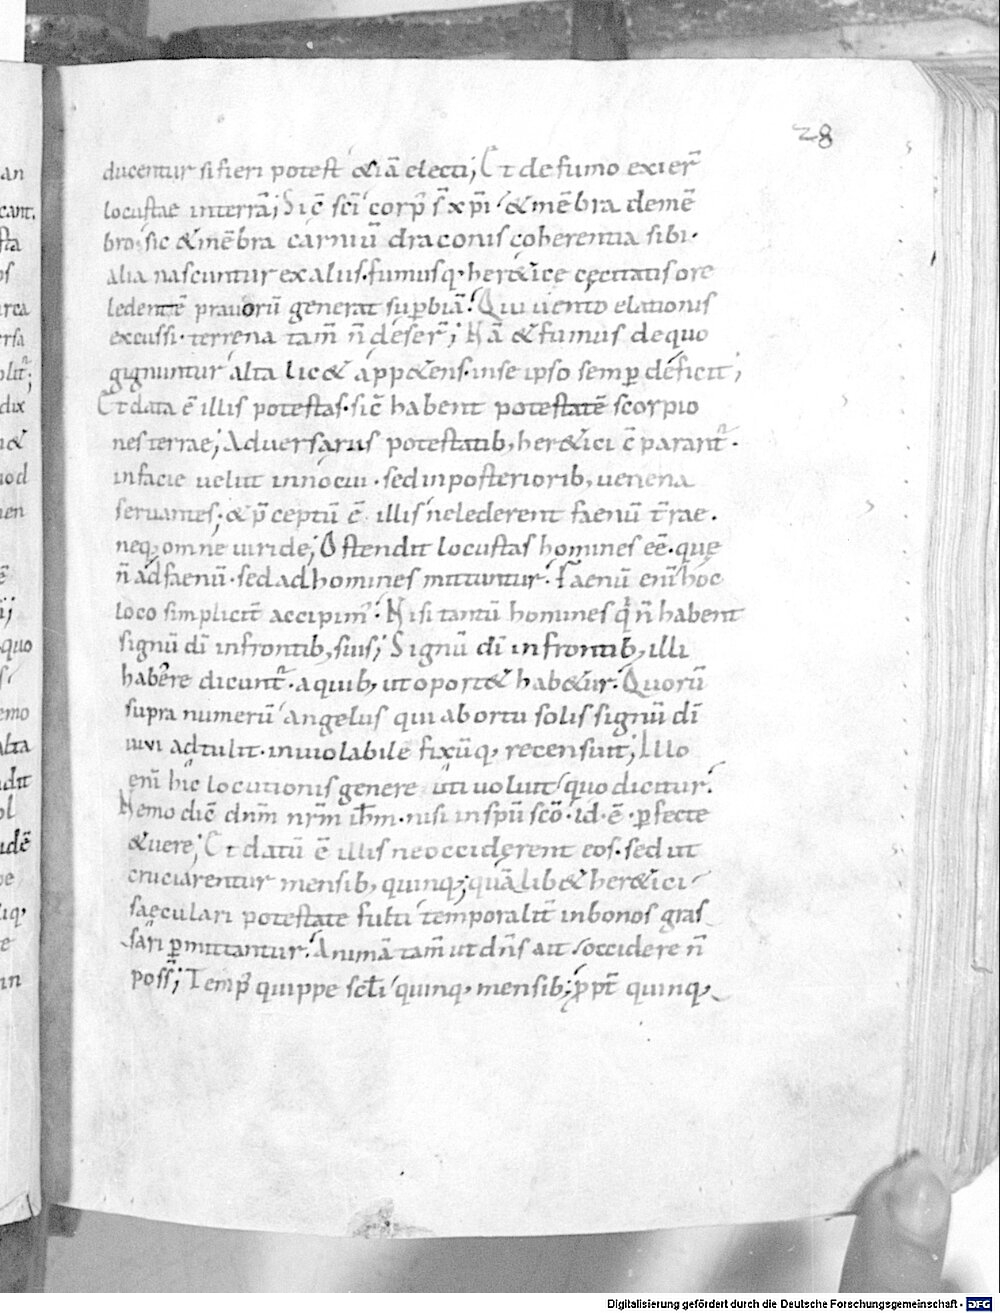 28
ducentur si fieri potest &iā electi; Et de fumo exier̄
locustae interrā; Sic̄ sc̄i corp̄ s̄ xp̄i & mēbra demē
bro, sic & mēbra carniū draconis coherentia sibi.
alia nascuntur exaliis. fumusq, her&ice cęcitatis ore
ledentē prauorū generat sup̄biā. Qui uento elationis
excussi. terrena tam̄ n̄ deser̄; Nā & fumus dequo
gignuntur alta lic& app&ens. inse ipso semp̄ deficit;
Et data ē illis potestas. sic̄ habent potestatē scorpio
nes terrae; Aduersariis potestatib, her&ici c̄parant̄.
infacie uelut innocui. sed inposteriorib, uenena
seruantes; & p̄ceptū ē illis ne lederent faenū t̄rae.
neq, omne uiride; Ostendit locustas homines eē. que
n̄ ad faenū. sed ad homines mittuntur. Faenū eni hoc
loco simplicit̄ accipim̄. Nisi tantū homines q̄ n̄ habent
signū dī infrontib, suis; Signū dī infrontib, illi
habere dicunt̄. a quib, ut oport& hab&ur. Quorū
supra numerū angelus qui abortu solis signū dī
uiui adtulit. inuiolabile fixūq, recensuit; Illo
eni hic locutionis genere uti uoluit quo dicitur.
Nemo dic̄ dn̄m nr̄m ihm̄. nisi inspū scō. id. ē. p̄fecte
& uere; Et datū ē illis ne occiderent eos. sed ut
cruciarentur mensib, quinq; quālib& her&ici
saeculari potestate fulti temporalit̄ inbonos gras
sari p̄mittantur. Animā tam̄ ut dn̄s ait occidere n̄
poss̄; Temp̄ quippe scl̄i quinq, mensib; p̄pt̄ quinq,
Digitalisierung gefördert durch die Deutsche Forschungsgemeinschaft - DFG